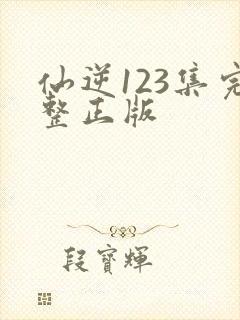 仙逆123集完
整正版
段寶輝